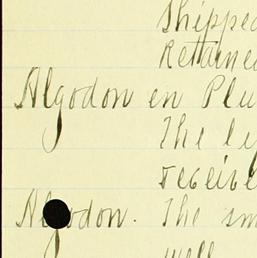 Shipped
Retained
Algodon en Plu
The
receive
Algodon. The sm
well